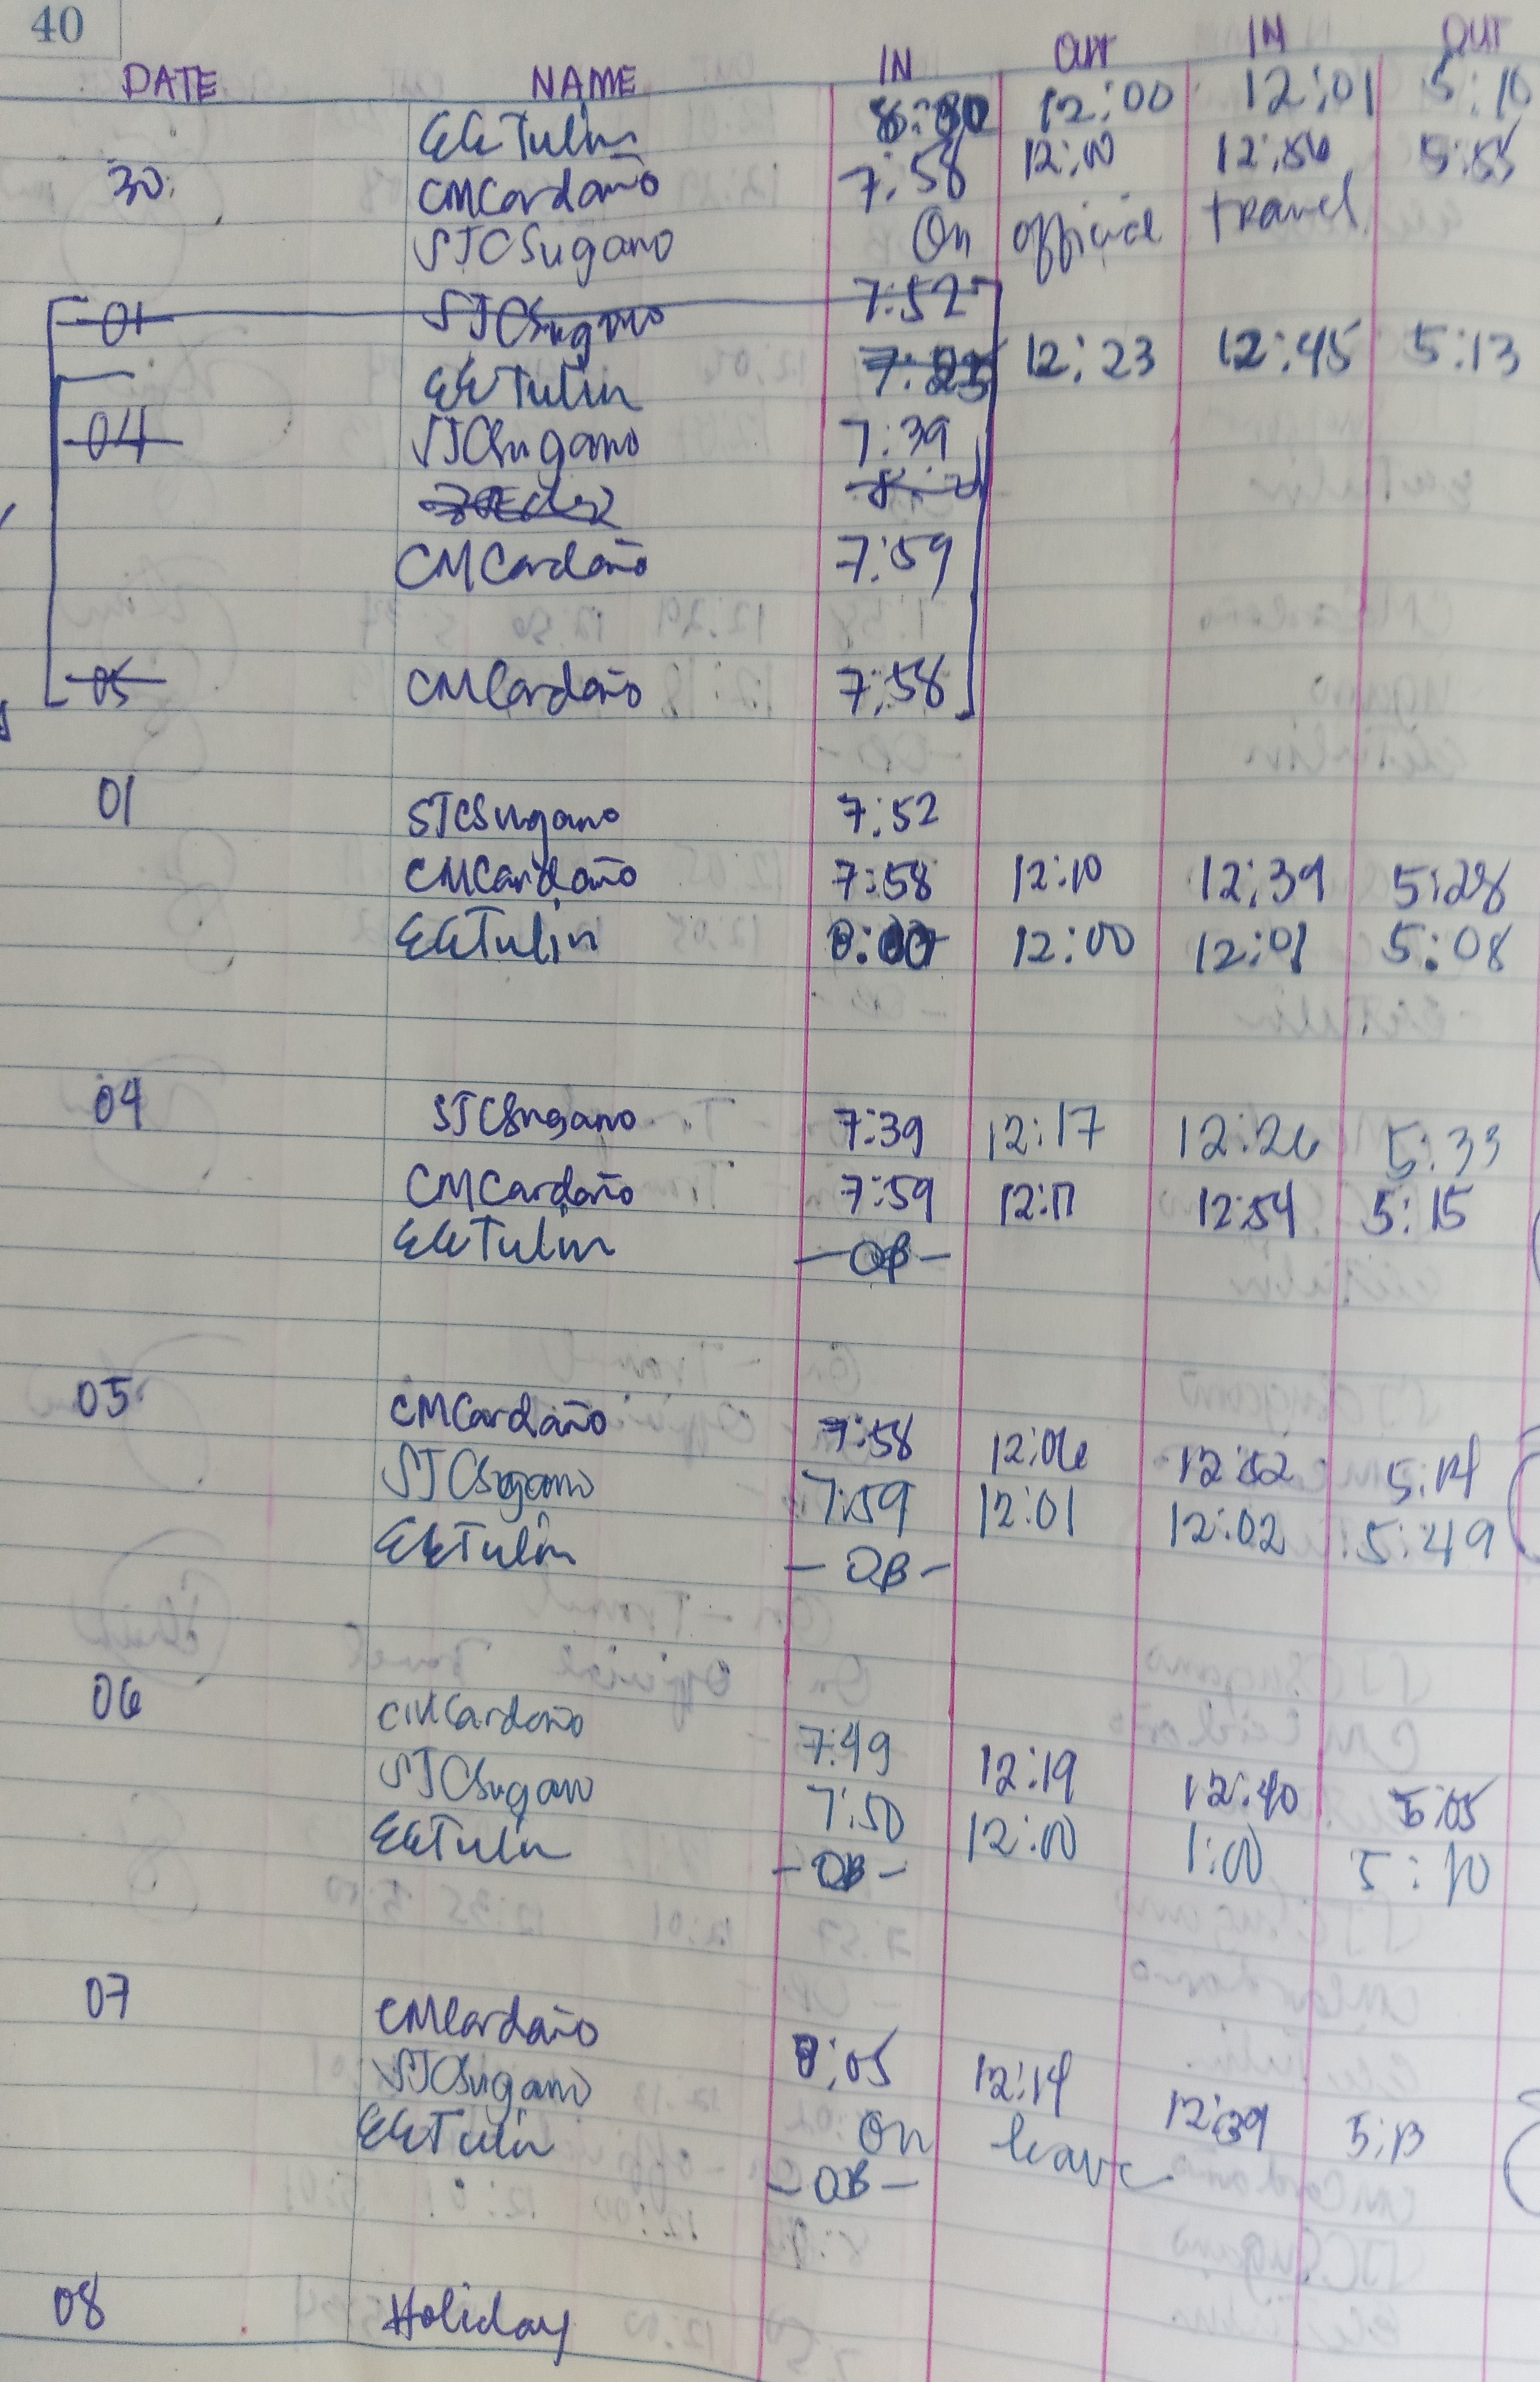 40
DATE NAME IN OUT IN OUT
EETulin 8:00 12:00 12:01 5:10
30 CMCardaño 7:58 12:00 12:56 5:55
STCSugano On official travel
01 STCSugano 7:52
EETulin 12:23 12:45 5:13
04 STCSugano 7:39
CMCardaño 7:59
05 CMCardaño 7:58
01 STCSugano 7:52
CMCardaño 7:58 12:10 12:39 5:28
EETulin 8:00 12:00 12:01 5:08
04 STCSugano 7:39 12:17 12:26 5:33
CMCardaño 7:59 12:17 12:54 5:15
EETulin -OB-
05 CMCardaño 7:58 12:06 12:52 5:14
STCSugano 7:59 12:01 12:02 5:49
EETulin -OB-
06 CMCardaño 7:49 12:19 12:40 5:05
STCSugano 7:50 12:00 1:00 5:10
EETulin -OB-
07 CMCardaño 8:05 12:14 12:39 5:13
STCSugano On leave
EETulin -OB-
08 Holiday